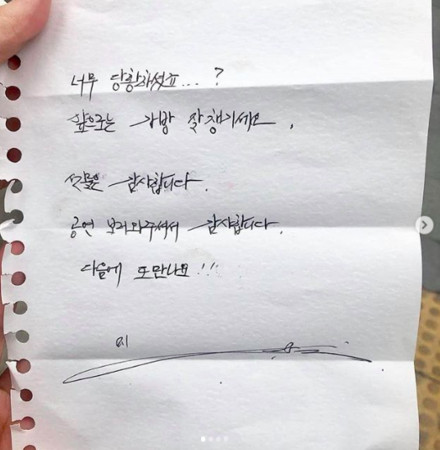 너무 당황하셨죠...?
앞으로는 가방 잘 챙기세요.
선물은 감사합니다.
공연 보러와주셔서 감사합니다.
다음에 또 만나요!!